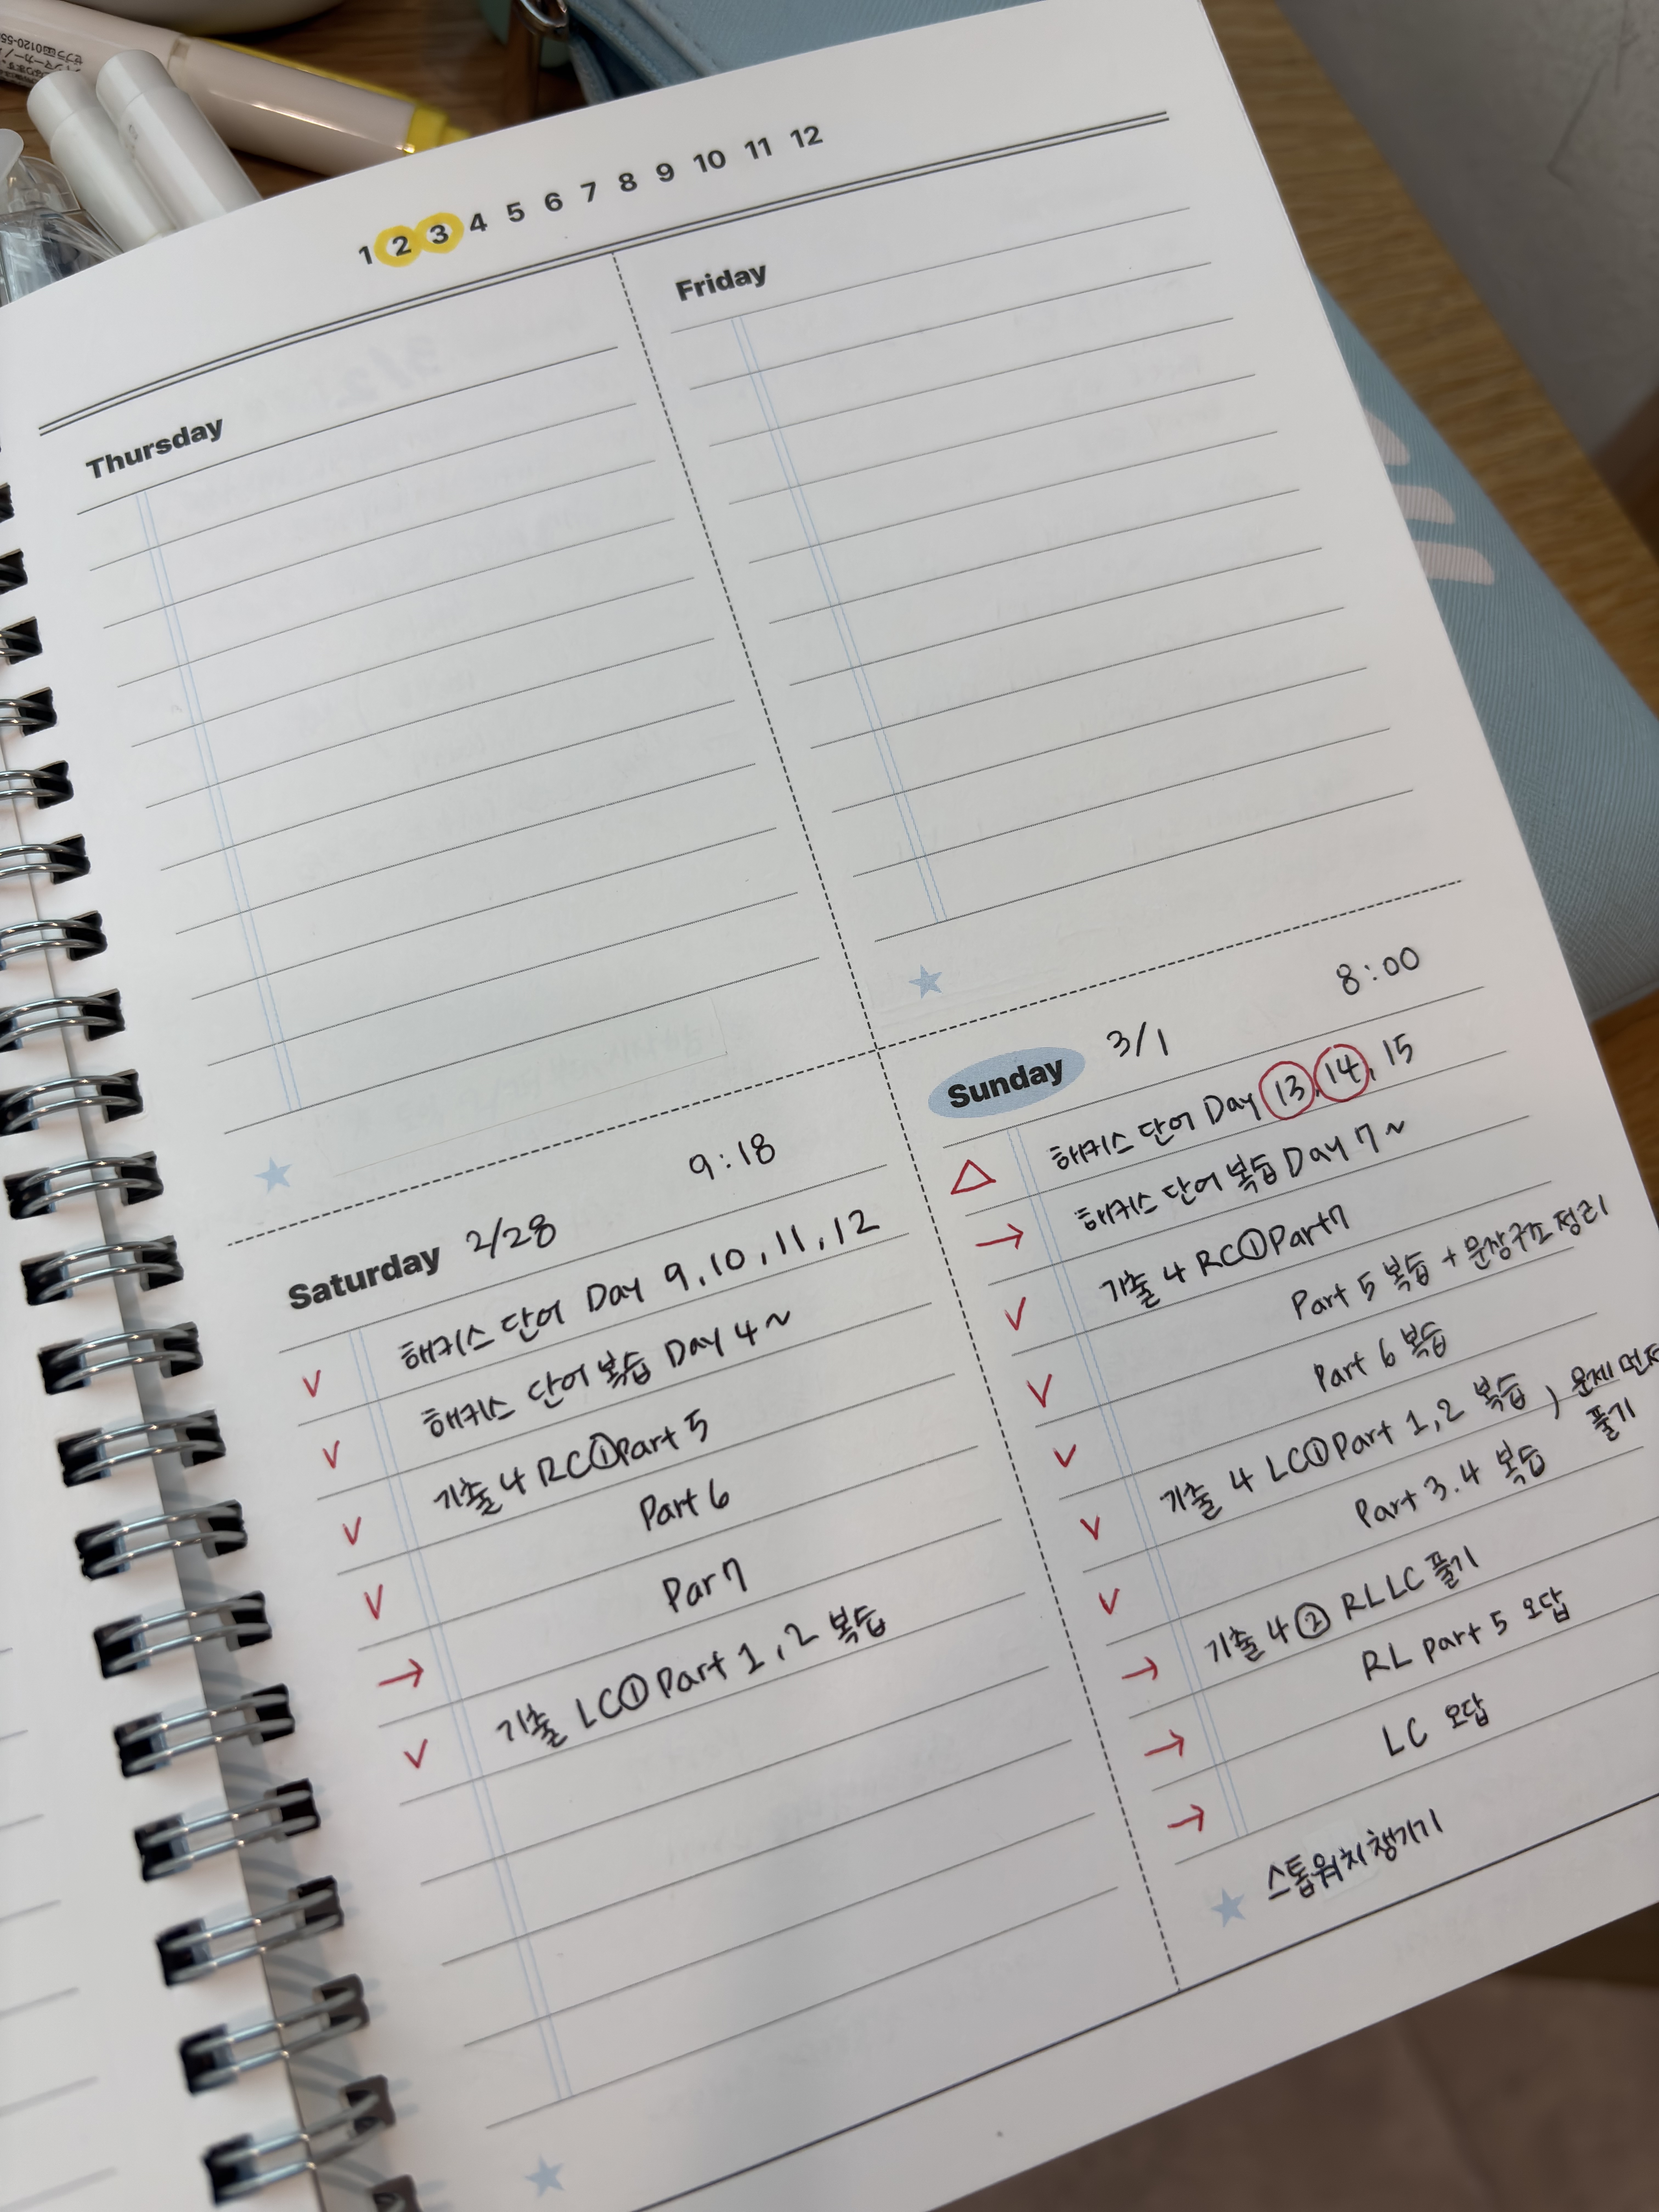 0120-55
1 2 3 4 5 6 7 8 9 10 11 12
Thursday
Friday
Saturday 2/28 9:18
V 해커스 단어 Day 9, 10, 11, 12
V 해커스 단어 복습 Day 4~
V 기출 4 RC① Part 5
V Part 6
→ Par 7
V 기출 LC① Part 1, 2 복습
Sunday 3/1 8:00
△ 해커스 단어 Day 13, 14, 15
→ 해커스 단어 복습 Day 7~
V 기출 4 RC① Part 7
V Part 5 복습 + 문장구조 정리
V Part 6 복습
V 기출 4 LC① Part 1, 2 복습 ) 문제 먼저
풀기
V Part 3. 4 복습
→ 기출 4 ② RL LC 풀기
→ RL part 5 오답
→ LC 오답
스톱워치 챙기기